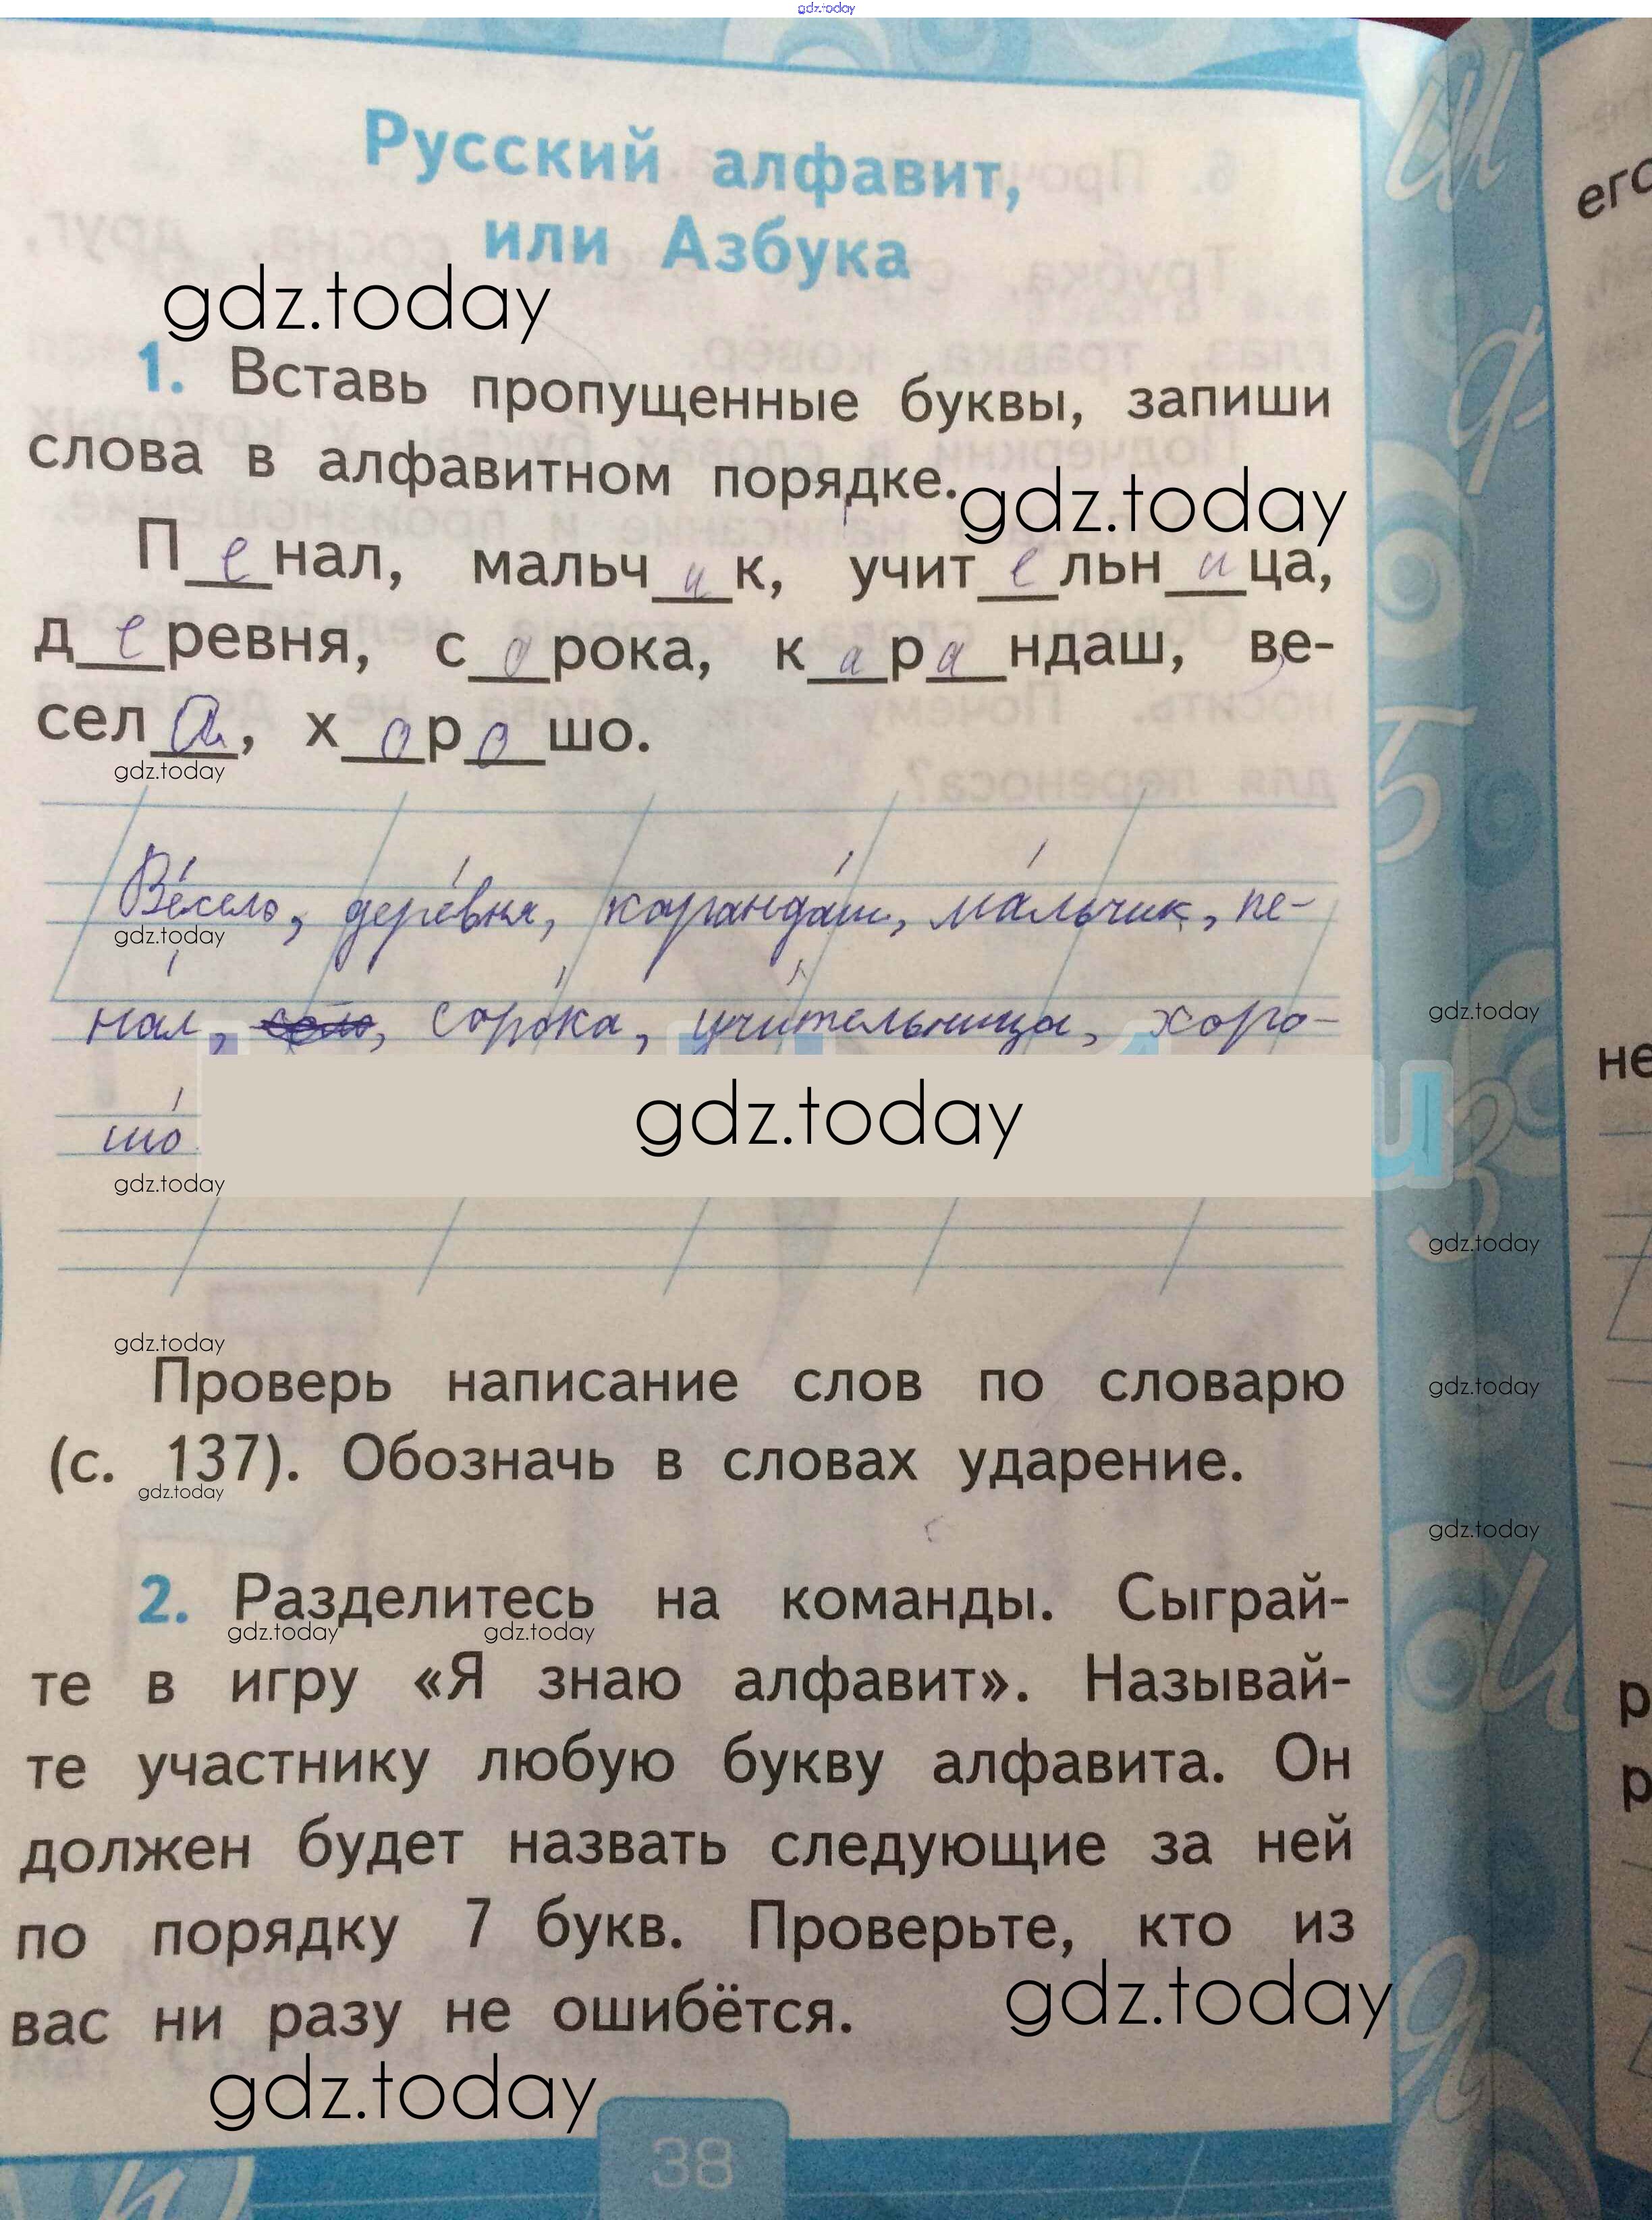 gdz.today
Русский алфавит,
или Азбука
gdz.today
1. Вставь пропущенные буквы, запиши
слова в алфавитном порядке.
gdz.today
П е нал, мальч и к, учит е льн и ца,
д е ревня, с о рока, к а р а ндаш, ве-
сел а, х о р о шо.
gdz.today
Ве́село, дере́вня, каранда́ш, ма́льчик, пе-
gdz.today
на́л, соро́ка, учи́тельница, хоро-
gdz.today
gdz.today
шо́.
gdz.today
gdz.today
gdz.today
Проверь написание слов по словарю
gdz.today
(с. 137). Обозначь в словах ударение.
gdz.today
gdz.today
2. Разделитесь на команды. Сыграй-
gdz.today gdz.today
те в игру «Я знаю алфавит». Называй-
те участнику любую букву алфавита. Он
должен будет назвать следующие за ней
по порядку 7 букв. Проверьте, кто из
вас ни разу не ошибётся.
gdz.today
gdz.today
38